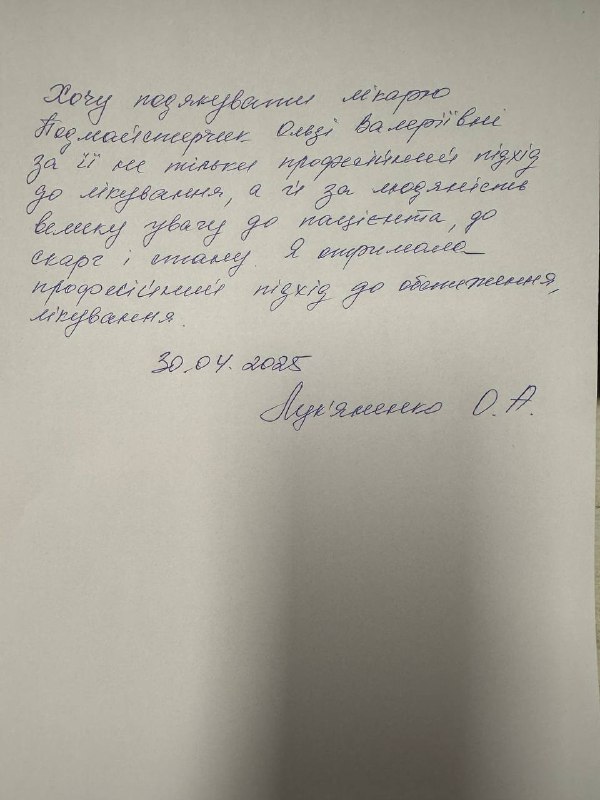 Хочу подякувати лікарю
Подмайстерчик Ользі Валеріївні
за її не тільки професійний підхід
до лікування, а й за людяність
велику увагу до пацієнта, до
скарг і стану. Я отримала
професійний підхід до обстеження,
лікування.
30.04.2025
Лук'яненко О.А.